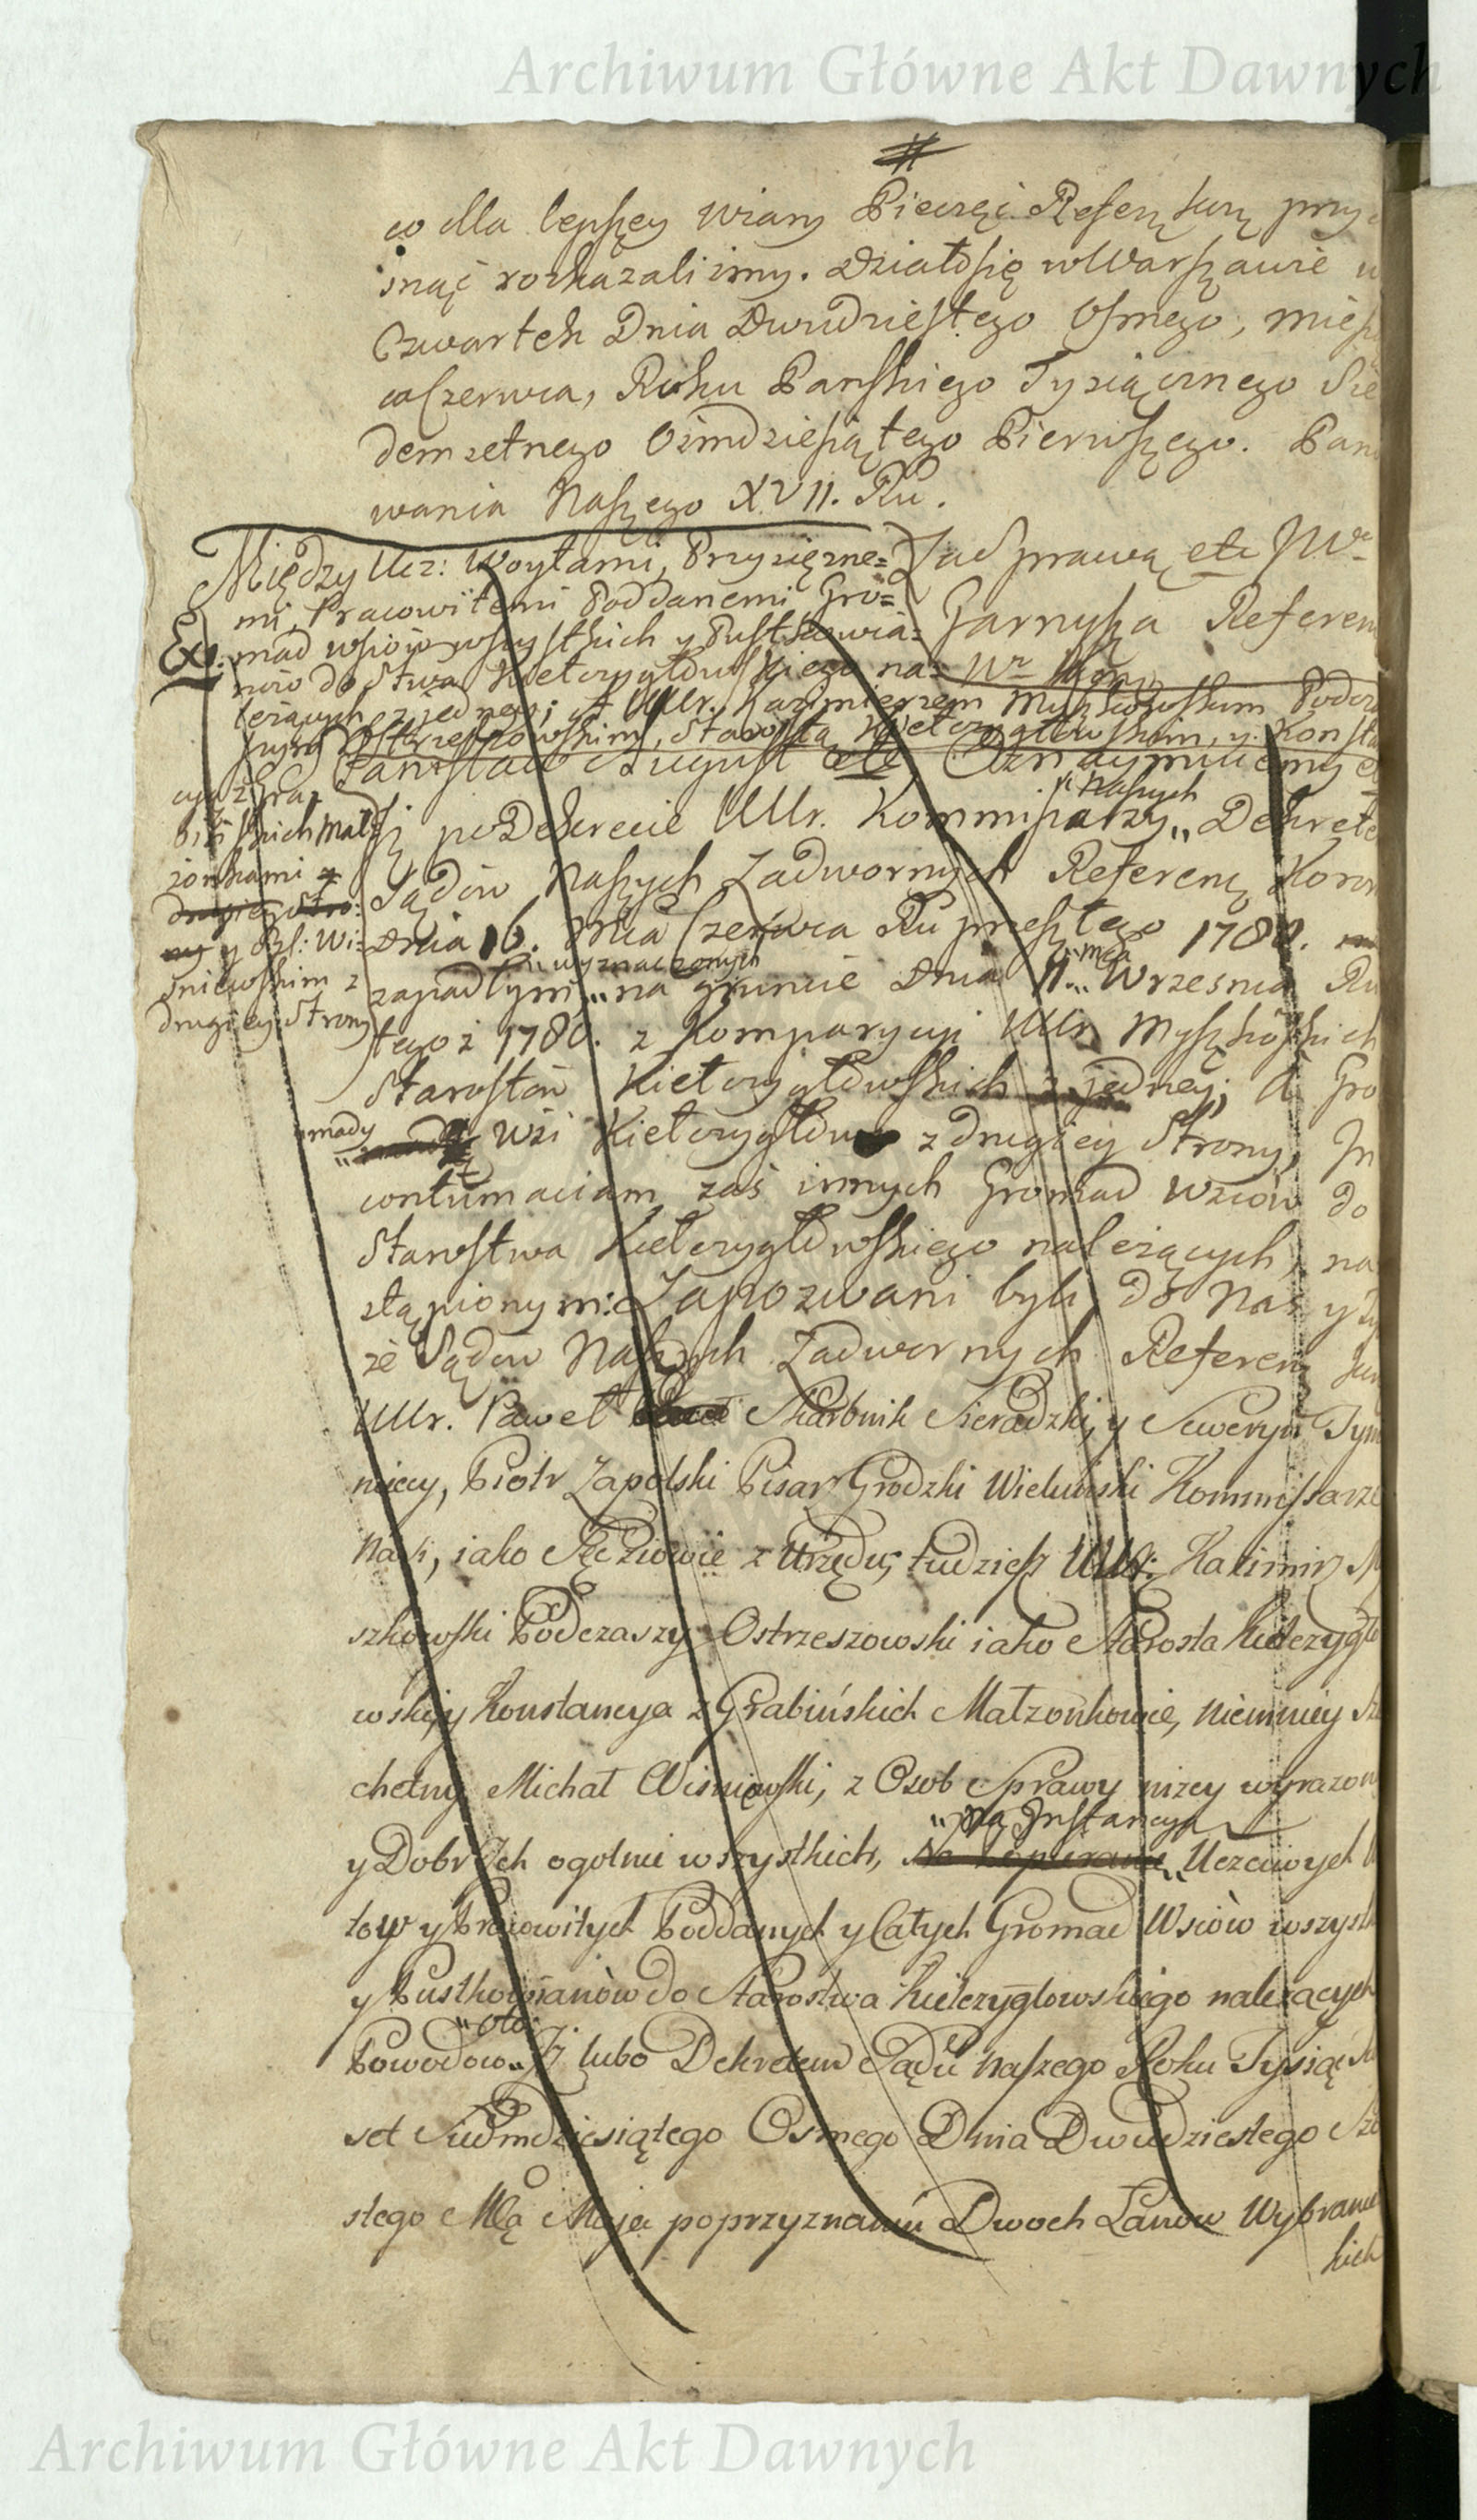 Archiwum Główne Akt Dawnych
co dla lepszey wiary Pieczęć Referą ską przy
snąć roskazalismy. Działo się w Warszawie w
Czwartek Dnia Dwudziestego Osmego, mieś
ca Czerwca, Roku Pańskiego Tysiącznego Sie
demsetnego Osmdziesiątego Pierwszego. Pano
wania Naszego XVII. Ru.
Między Ucz: Woytami, Przysięzne=
mi, Pracowitemi Poddanemi Gro=
mad wsiów wszystkich y Pustkowia=
nów do Stwa Kiełczygłowskiego na=
leżących z jedney; A Ur. Kazimierzem Myszkowskim Podcza
szym Ostrzeszowskim, Starostą Kiełczygłowskim, y Konsta
cyą z Gra=
binskich Małż
żonkami z
drugiey Stro:
ny y Szl: Wi=
sniewskim z
drugiey Strony
Ex.
Za sprawą etc JW
Garnysza Referen
Stanisław August etc Oznaymuiemy etc
iż po Dekrecie Ur. Kommissarzy,, Dekrete
,,Naszych
Sądów Naszych Zadwornych Referen Koron
Dnia 16. Dnia Czerwca Ru przeszłego 1780.
zapadłym,,na gruncie Dnia 11.,, Wrzesnia Ru
,,wyznaczonych
,,mca
tegoż 1780. z Komparycyi Ur. Myszkowskich
Starostów Kiełczygłowskich z jedney; A Gro
,,mady Wsi Kiełczygłow z drugiey Strony, In
contumaciam zaś innych Gromad Wsiów do
Starostwa Kiełczygłowskiego należących, na
stąpionym: Zapozwani byli do Nas y Ty
że Sądów Naszych Zadwornych Referen
Ur. Paweł Skarbnik Sieradzki, y Seweryn Tym
nieccy, Piotr Zapolski Pisarz Grodzki Wieluński Kommissarze
Nasi, iako Sędziowie z Urzędu, tudziesz Ur: Kazimirz My
szkowski Podczaszy Ostrzeszowski iako Starosta Kiełczygło
wski, y Konstancya z Grabińskich Małżonkowie, niemniey Szla
chetny Michał Wisniewski, z Osob Sprawy niżey wyrażon
y Dobr Ich ogolnie wszystkich, Na Popieranie,, Uczciwych
,,Na Instancyą
tow y Pracowitych Poddanych y Całych Gromad Wsiòw wszystk
y Pustkowianòw do Starostwa Kiełczygłowskiego należących
Powodow,, Iż lubo Dekretem Sądu Naszego Roku Tysiąc
,,oto:
set Siedmdziesiątego Osmego Dnia Dwudziestego Szo
stego Mca Maja po przyznaniu Dwoch Łanow Wybranie
kich
Archiwum Główne Akt Dawnych